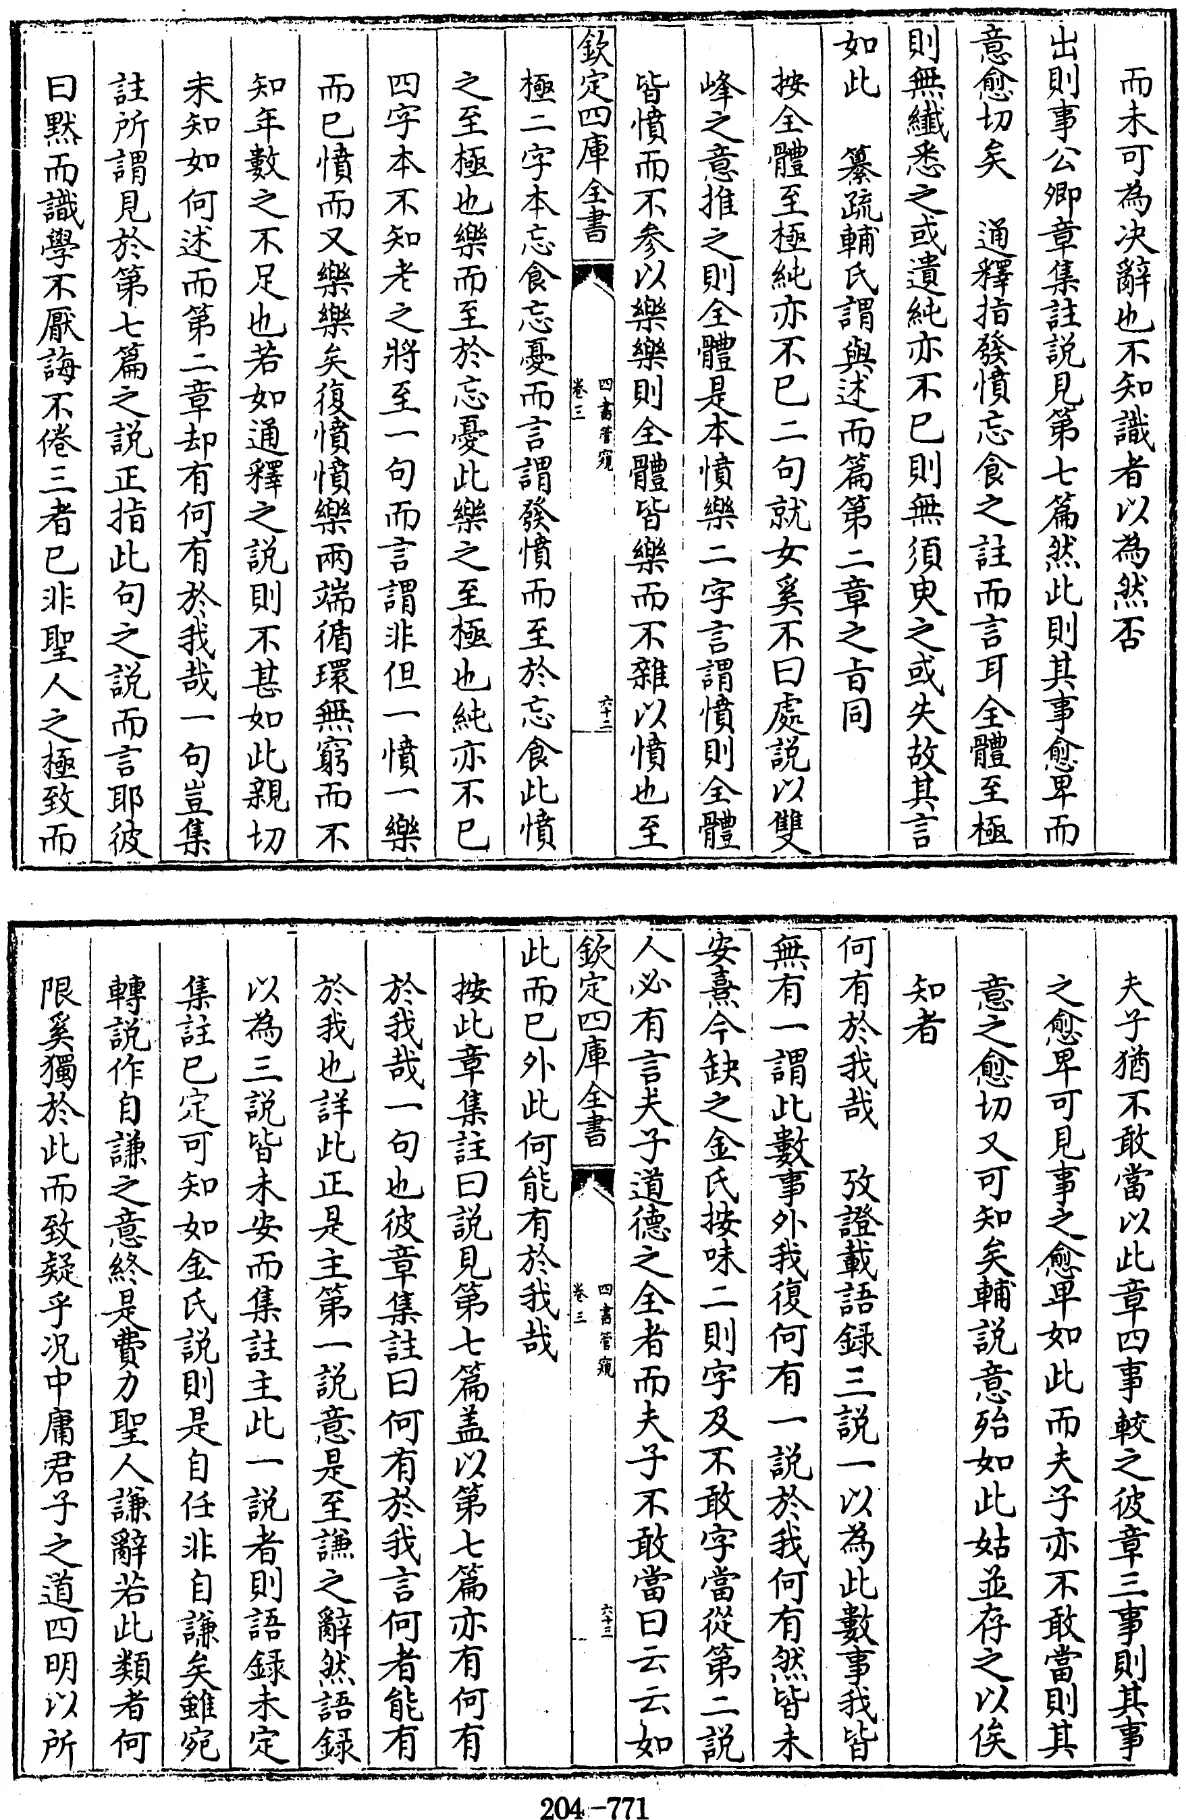 而未可為決辭也不知識者以為然否
出則事公卿章集註説見第七篇然此則其事愈卑而
意愈切矣　通釋指發憤忘食之註而言耳全體至極
則無纎悉之或遺純亦不已則無須臾之或失故其言
如此　纂疏輔氏謂與述而篇第二章之旨同
按全體至極純亦不已二句就女奚不曰處説以雙
峰之意推之則全體是本憤樂二字言謂憤則全體
皆憤而不參以樂樂則全體皆樂而不雜以憤也至
欽定四庫全書
四書管窺
卷三
六十二
極二字本忘食忘憂而言謂發憤而至於忘食此憤
之至極也樂而至於忘憂此樂之至極也純亦不已
四字本不知老之將至一句而言謂非但一憤一樂
而已憤而又樂樂矣復憤憤樂兩端循環無窮而不
知年數之不足也若如通釋之説則不甚如此親切
未知如何述而第二章却有何有於我哉一句豈集
註所謂見於第七篇之説正指此句之説而言耶彼
曰黙而識學不厭誨不倦三者已非聖人之極致而
夫子猶不敢當以此章四事較之彼章三事則其事
之愈卑可見事之愈卑如此而夫子亦不敢當則其
意之愈切又可知矣輔説意殆如此姑並存之以俟
知者
何有於我哉　攷證載語録三説一以為此數事我皆
無有一謂此數事外我復何有一説於我何有然皆未
安熹今缺之金氏按味二則字及不敢字當從第二説
人必有言夫子道德之全者而夫子不敢當曰云云如
欽定四庫全書
四書管窺
卷三
六十三
此而已外此何能有於我哉
按此章集註曰説見第七篇盖以第七篇亦有何有
於我哉一句也彼章集註曰何有於我言何者能有
於我也詳此正是主第一説意是至謙之辭然語録
以為三説皆未安而集註主此一説者則語録未定
集註已定可知如金氏説則是自任非自謙矣雖宛
轉説作自謙之意終是費力聖人謙辭若此類者何
限奚獨於此而致疑乎况中庸君子之道四明以所
204-771